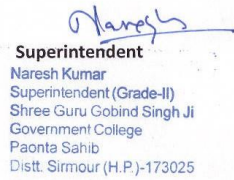 Naresh
Superintendent
Naresh Kumar
Superintendent (Grade-II)
Shree Guru Gobind Singh Ji
Government College
Paonta Sahib
Distt. Sirmour (H.P.)-173025